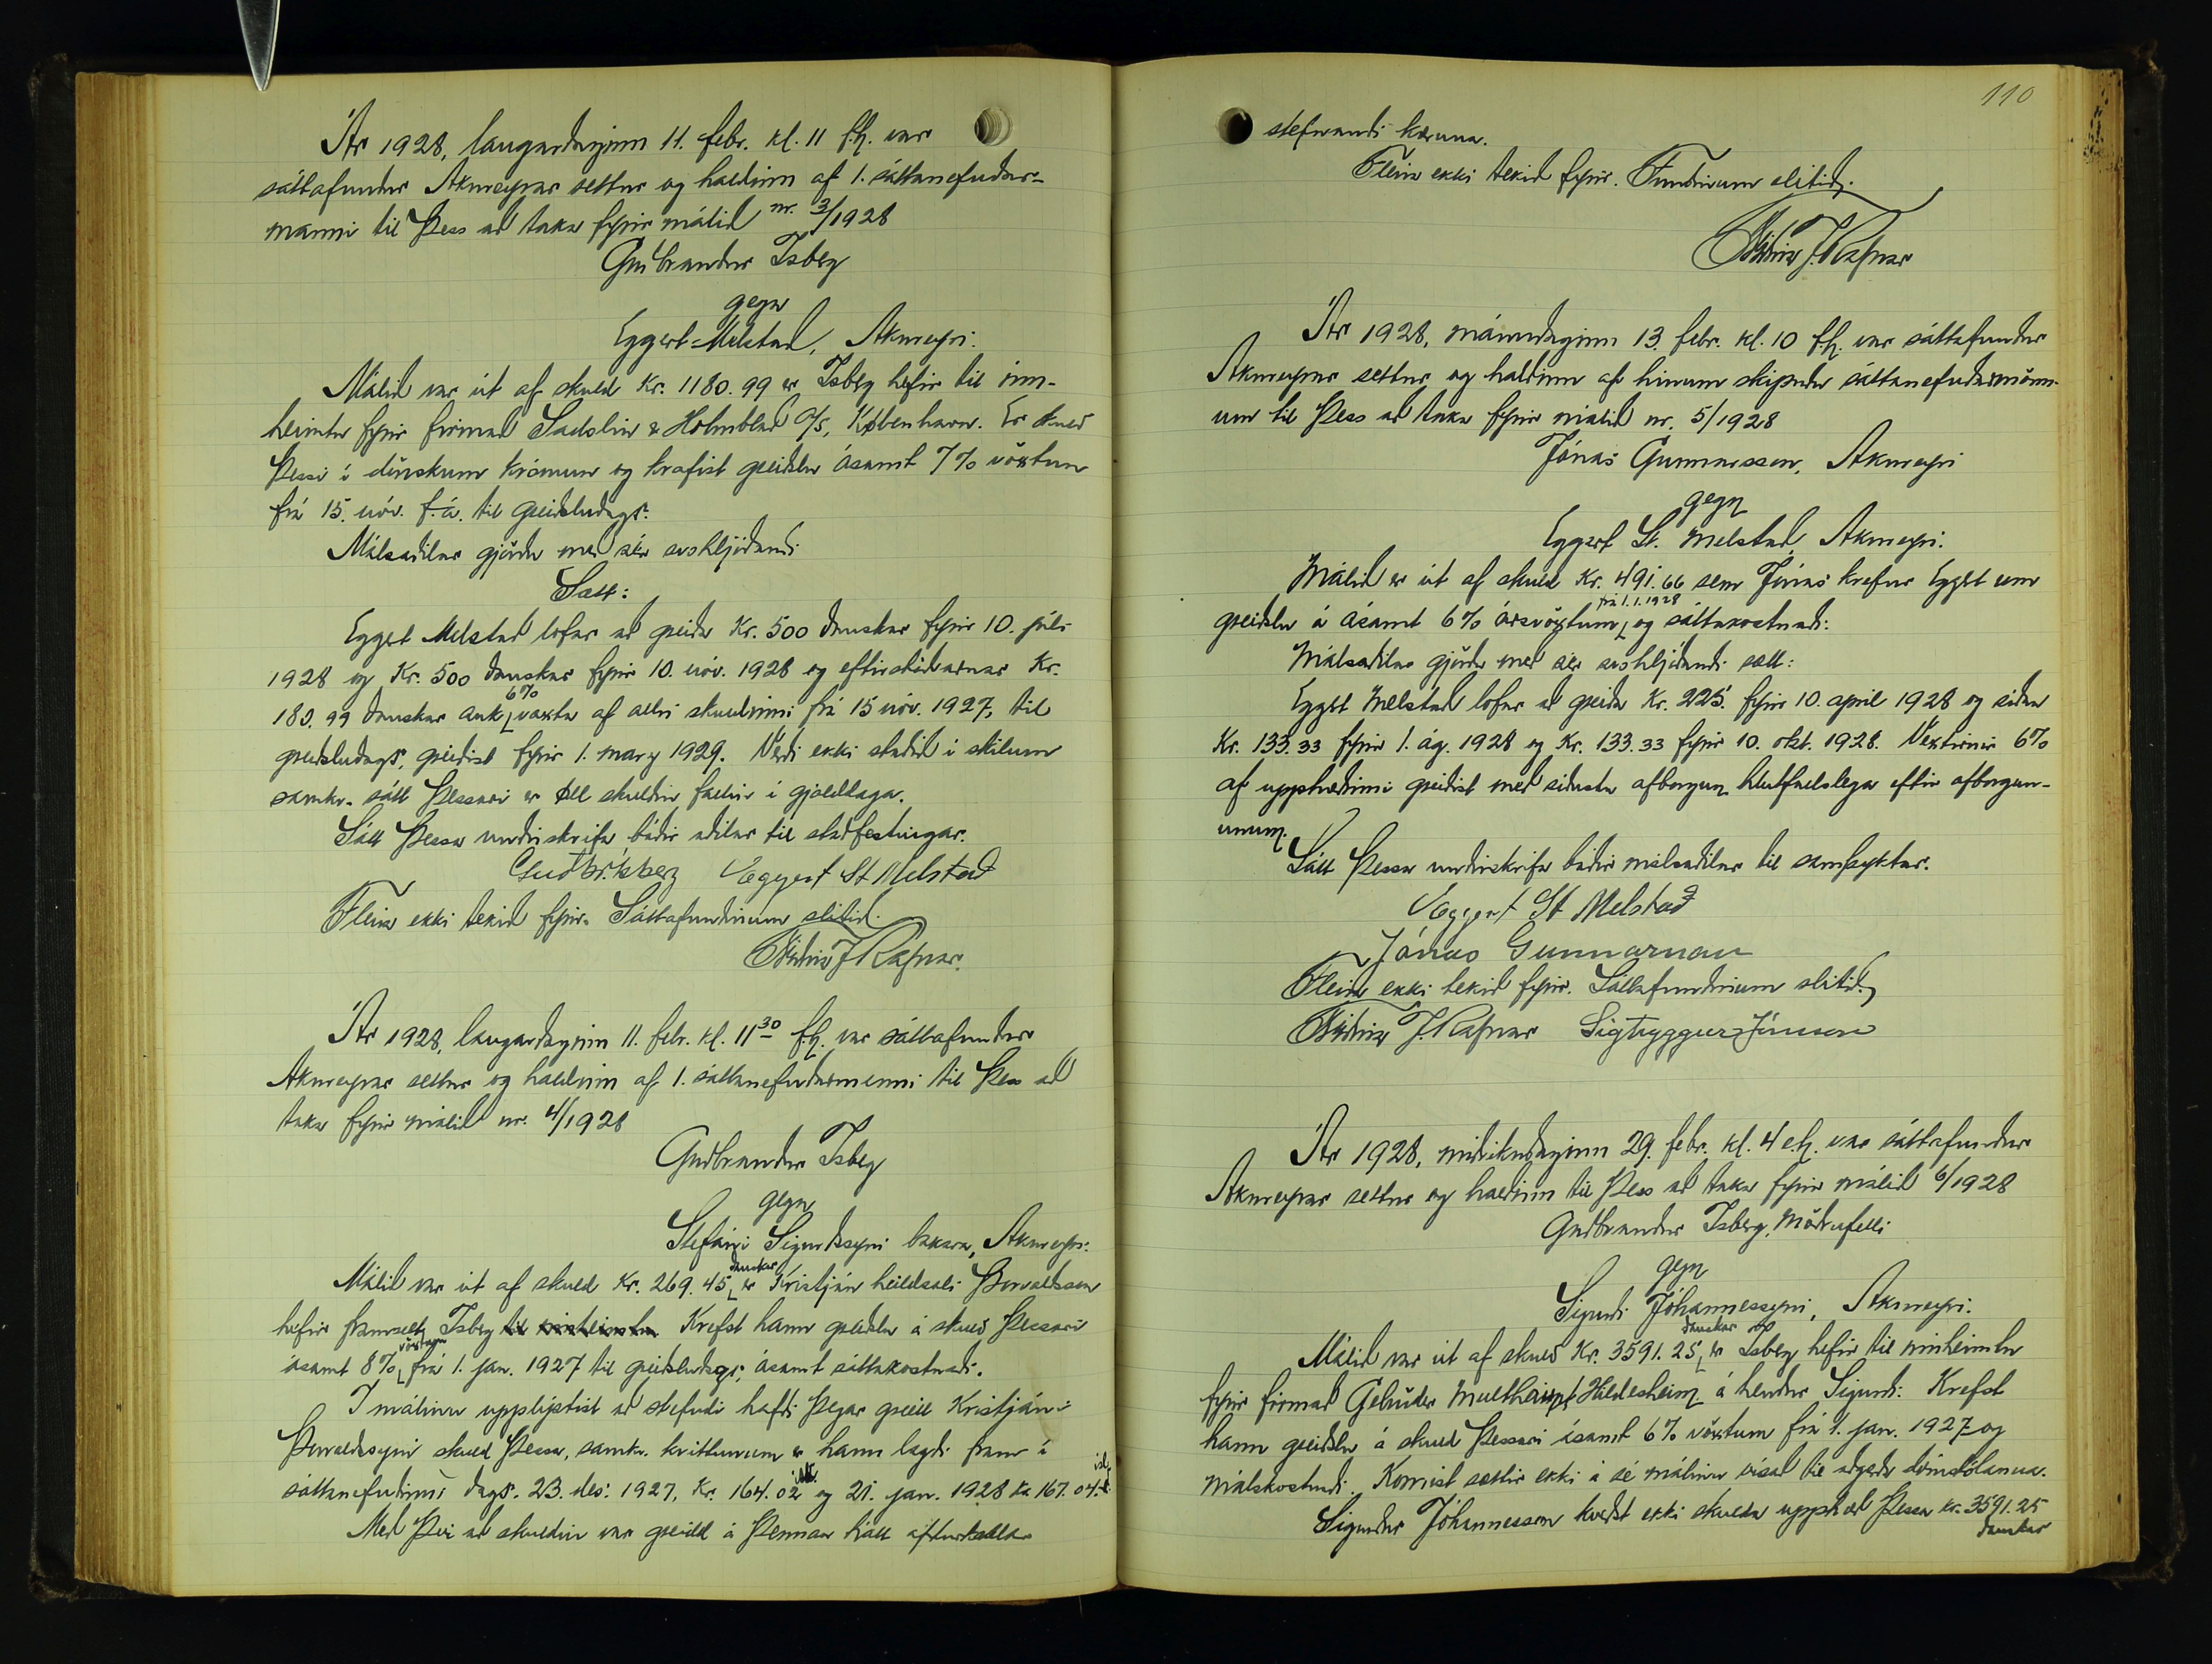 Ár 1928, laugardaginn 11. febr. kl. 11 f.h. var
sáttafundur Akureyrar settur og haldinn af 1. sáttanefndar-
manni til þess að taka fyrir málið nr. 3/1928
Guðbrandur Isberg
gegn
Eggert Melstað, Akureyri.
Málið var út af skuld Kr. 1180.99 er Isberg hefir til inn-
heimtu fyrir firmað Sadolin & Holmblad A/S, København. Er skuld
þessi í dönskum krónum og krafist greiðslu ásamt 7% vöxtum
frá 15. nóv. f.á. til greiðsludags.
Málsaðilar gjörðu með sér svohljóðandi
Sátt:
Eggert Melstað lofar að greiða Kr. 500 danskar fyrir 10. júlí
1928 og Kr. 500 danskar fyrir 10. nóv. 1928 og eftirstöðvarnar Kr.
180.99 danskar auk 6% vaxta af allri skuldinni frá 15 nóv. 1927, til
greiðsludags, greiðist fyrir 1. marz 1929. Verði ekki staðið í skilum
samkv. sátt þessari er öll skuldin fallin í gjalddaga.
Sátt þessa undirskrifa báðir aðilar til staðfestingar.
Guðbr. Isberg Eggert St Melstað
Fleira ekki tekið fyrir. Sáttafundinum slitið.
Steingr J. Rafnar.
Ár 1928, laugardaginn 11. febr. kl. 11 30 f.h. var sáttafundur
Akureyrar settur og haldinn af 1. sáttanefndarmanni til þess að
taka fyrir málið nr. 4/1928
Guðbrandur Isberg
gegn
Stefáni Sigurðssyni bakara, Akureyri.
Málið var út af skuld Kr. 269.45 danskar er Kristján heildsali Þorvaldsson
hefir framselt Isberg til innheimtu Krefst hann greiðslu á skuld þessari
ásamt 8% vöxtum frá 1. jan. 1927 til greiðsludags, ásamt sáttakostnaði.
I málinu upplýstist að stefndi hafði þegar greitt Kristjáni
Þorvaldssyni skuld þessa, samkv. kvittunum er hann lagði fram í
sáttanefndinni dags. 23. des. 1927, Kr. 164.02 ísl. og 21. jan. 1928 kr. 167.04 ísl.
Með því að skuldin var greidd á þennan hátt afturkallar
110
stefnandi kæruna.
Fleira ekki tekið fyrir. Fundinum slitið.
Steingr J. Rafnar
Ár 1928, mánudaginn 13. febr. kl. 10 f.h. var sáttafundur
Akureyrar settur og haldinn af hinum skipuðu sáttanefndarmönn-
um til þess að taka fyrir málið nr. 5/1928
Jónas Gunnarsson, Akureyri
gegn
Eggert St. Melstað, Akureyri.
Málið er út af skuld Kr. 491.66 sem Jónas krefur Eggert um
greiðslu á ásamt 6% ársvöxtum frá 1.1.1928 og sáttakostnaði.
Málsaðilar gjörðu með sér svohljóðandi sátt:
Eggert Melstað lofar að greiða Kr. 225. fyrir 10. apríl 1928 og síðan
Kr. 133.33 fyrir 1. ág. 1928 og Kr. 133.33 fyrir 10. okt. 1928. Vextirnir 6%
af upphæðinni greiðist með síðustu afborgun hlutfallslega eftir afborgun-
unum.
Sátt þessa undirskrifa báðir málsaðilar til samþyktar.
Eggert St Melstað
Jónas Gunnarsson
Fleira ekki tekið fyrir. Sáttafundinum slitið.
Steingr J. Rafnar Sigtryggur Jónsson
Ár 1928, miðvikudaginn 29. febr. kl. 4 e.h. var sáttafundur
Akureyrar settur og haldinn til þess að taka fyrir málið 6/1928
Guðbrandur Isberg, Möðrufelli
gegn
Sigurði Jóhannessyni, Akureyri.
Málið var út af skuld Kr. 3591.25 danskar er Isberg hefir til innheimtu
fyrir firmað Gebrüder Mutheim Hildesheim á hendur Sigurði. Krefst
hann greiðslu á skuld þessari ásamt 6% vöxtum frá 1. jan. 1927 og
málskostnaði. Komist sættir ekki á sé málinu vísað til aðgerða dómstólanna.
Sigurður Jóhannesson kveðst ekki skulda upphæð þessa kr. 3591.25
danskar